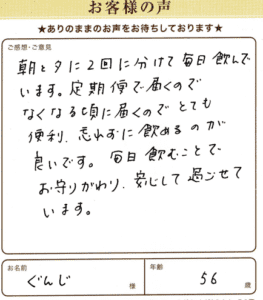 お客様の声
★ありのままのお声をお待ちしております★
ご感想・ご意見
朝と夕に2回に分けて毎日飲んで
います。定期便で届くので
なくなる頃に届くのでとても
便利、忘れずに飲めるのが
良いです。毎日飲むことで
お守りがわり、安心して過ごせて
います。
お名前
ぐんじ 様
年齢
56 歳